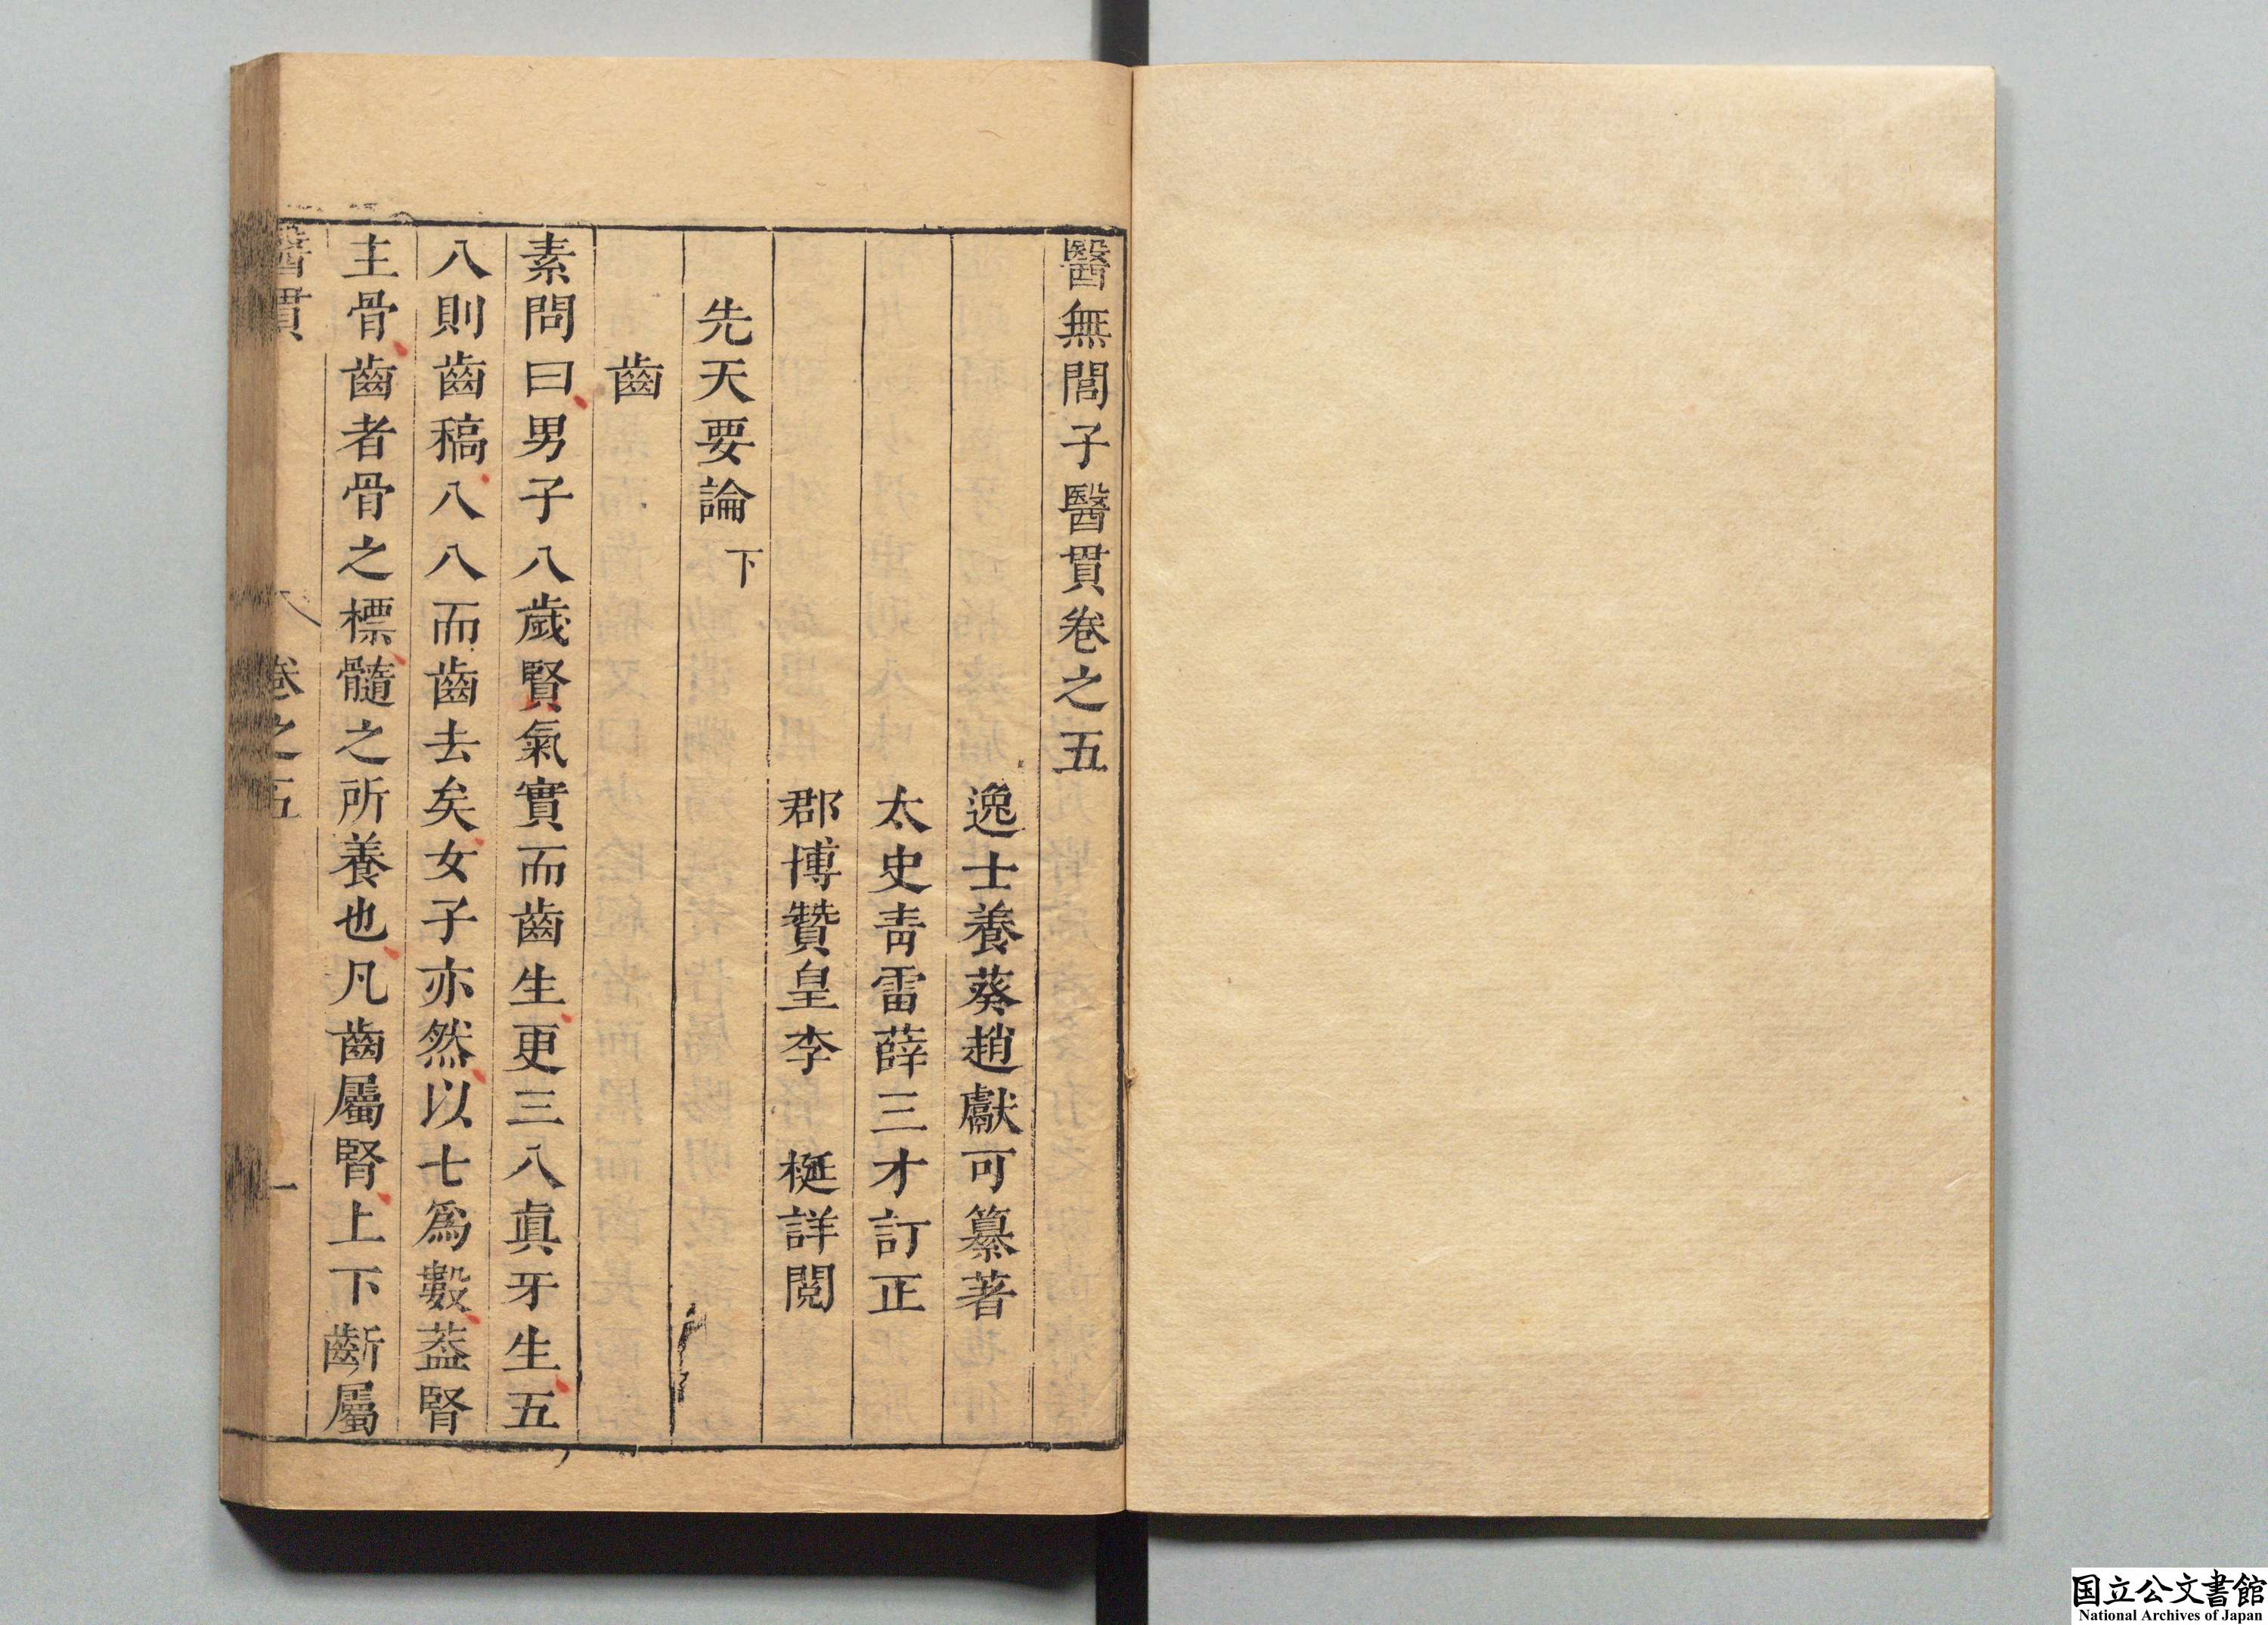 醫無閭子醫貫卷之五
逸士養葵趙獻可纂著
太史青雷薛三才訂正
郡博贊皇李 梃詳閱
先天要論 下
齒
素問曰男子八歲賢氣實而齒生更三八眞牙生五
八則齒稿八八而齒去矣女子亦然以七爲數葢腎
主骨齒者骨之標髓之所養也凡齒屬腎上下齗屬
醫貫 卷之五 一
国立公文書館
National Archives of Japan